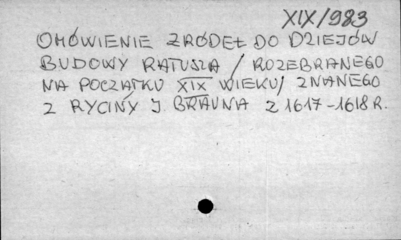 XIX/983
OMÓWIENIE ZRÓDEŁ DO DZIEJÓW
BUDOWY RATUSZA / ROZEBRANEGO
NA POCZĄTKU XIX WIEKU/ ZNANEGO
Z RYCINY J BRAUNA Z 1617-1618 R.